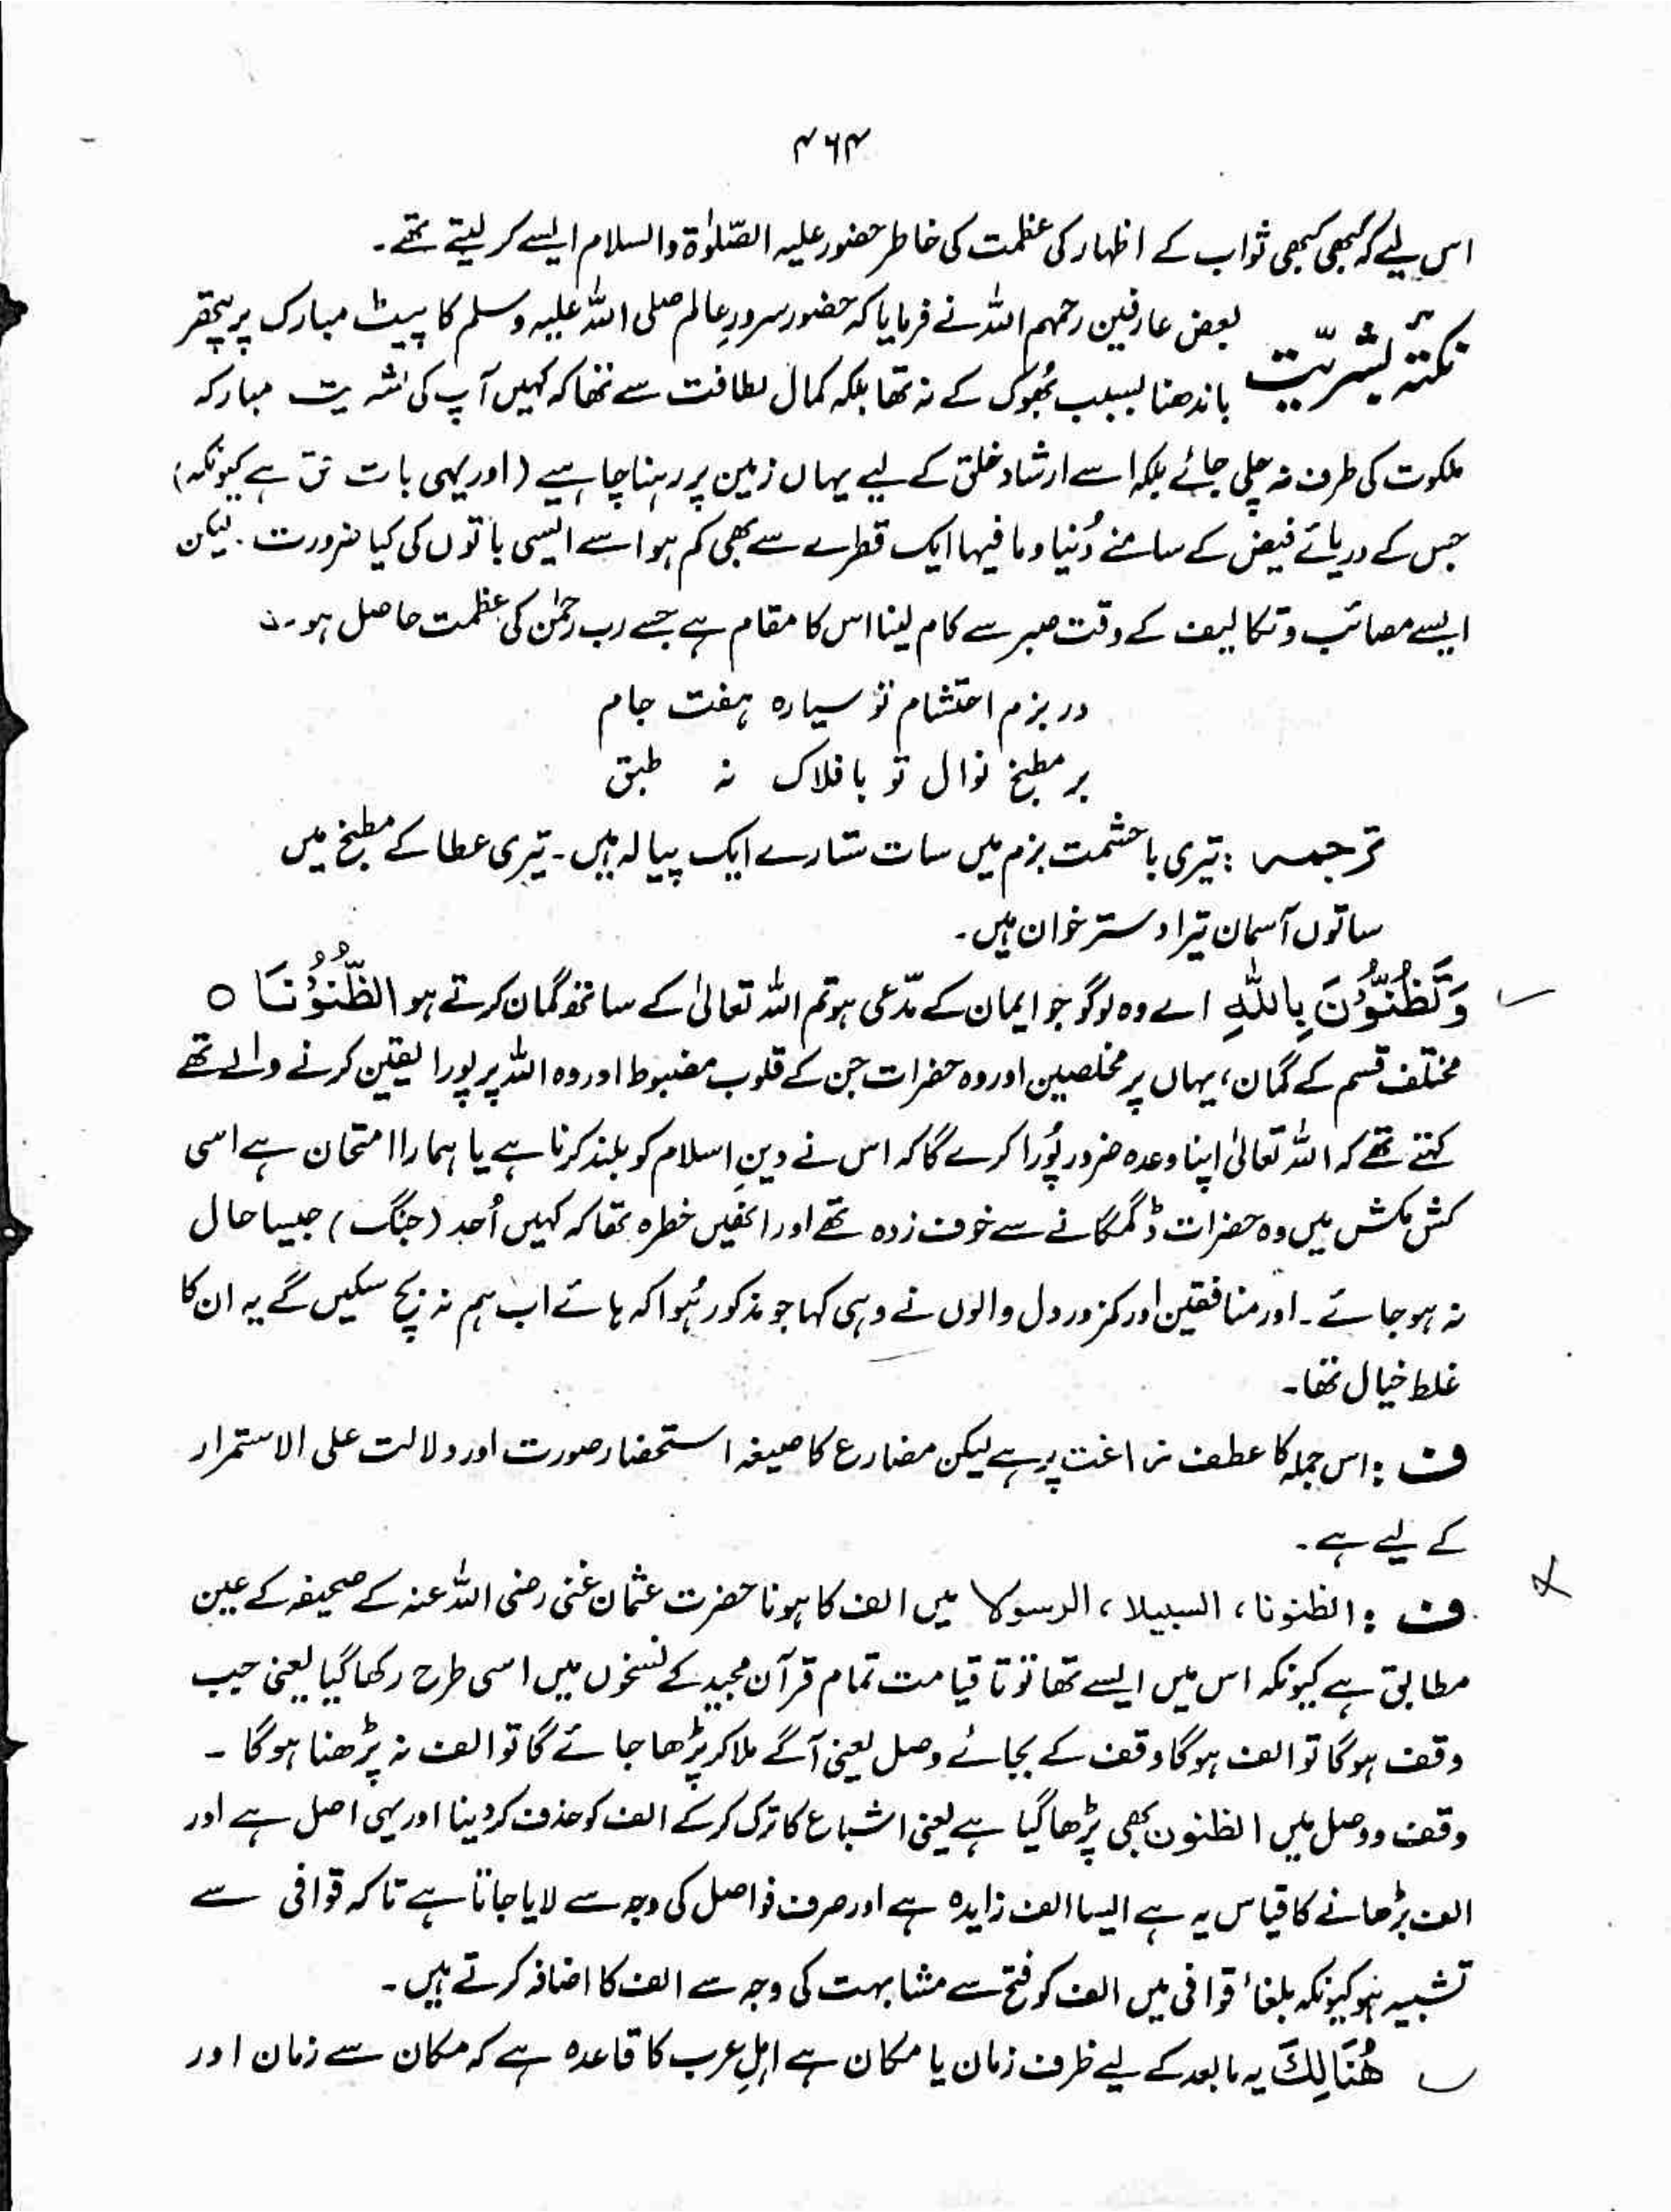 ۴۶۴
اس لیے کہ کبھی کبھی ثواب کے اظہار کی عظمت کی خاطر حضور علیہ الصّلوٰۃ والسلام ایسے کر لیتے تھے۔
نکتۂ بشریّت بعض عارفین رحمہم اللہ نے فرمایا کہ حضور سرورِ عالم صلی اللہ علیہ وسلم کا پیٹ مبارک پر پتھر
باندھنا بسبب بھُوک کے نہ تھا بلکہ کمال لطافت سے تھا کہ کہیں آپ کی بشریت مبارکہ
ملکوت کی طرف نہ چلی جائے بلکہ اسے ارشاد خلق کے لیے یہاں زمین پر رہنا چاہیے (اور یہی بات حق ہے کیونکہ)
جس کے دریائے فیض کے سامنے دُنیا و ما فیہا ایک قطرے سے بھی کم ہو اسے ایسی باتوں کی کیا ضرورت ۔ لیکن
ایسے مصائب و تکالیف کے وقت صبر سے کام لینا اس کا مقام ہے جسے رب رحمٰن کی عظمت حاصل ہو۔
در بزم احتشام تو سیارہ ہفت جام
بر مطبخ نوال تو بافلاک نہ طبق
ترجمہ : تیری باحشمت بزم میں سات ستارے ایک پیالہ ہیں۔ تیری عطا کے مطبخ میں
ساتوں آسمان تیرا دسترخوان ہیں۔
وَتَظُنُّوْنَ بِاللّٰهِ اے وہ لوگو جو ایمان کے مدّعی ہو تم اللہ تعالیٰ کے ساتھ گمان کرتے ہو الظُّنُوْنَا ○
مختلف قسم کے گمان، یہاں پر مخلصین اور وہ حضرات جن کے قلوب مضبوط اور وہ اللہ پر پورا یقین کرنے والے تھے
کہتے تھے کہ اللہ تعالیٰ اپنا وعدہ ضرور پُورا کرے گا کہ اس نے دینِ اسلام کو بلند کرنا ہے یا ہمارا امتحان ہے اسی
کش مکش میں وہ حضرات ڈگمگانے سے خوف زدہ تھے اور انھیں خطرہ تھا کہ کہیں اُحد (جنگ) جیسا حال
نہ ہو جائے۔ اور منافقین اور کمزور دل والوں نے وہی کہا جو مذکور ہُوا کہ ہائے اب ہم نہ بچ سکیں گے یہ ان کا
غلط خیال تھا۔
ف : اس جملہ کا عطف زاغت پر ہے لیکن مضارع کا صیغہ استحضار صورت اور دلالت علی الاستمرار
کے لیے ہے۔
ف : الظنونا، السبیلا، الرسولا میں الف کا ہونا حضرت عثمان غنی رضی اللہ عنہ کے صحیفہ کے عین
مطابق ہے کیونکہ اس میں ایسے تھا تو تا قیامت تمام قرآن مجید کے نسخوں میں اسی طرح رکھا گیا یعنی جب
وقف ہوگا تو الف ہوگا وقف کے بجائے وصل یعنی آگے ملا کر پڑھا جائے گا تو الف نہ پڑھنا ہوگا ۔
وقف و وصل میں الظنون بھی پڑھا گیا ہے یعنی اشباع کا ترک کر کے الف کو حذف کر دینا اور یہی اصل ہے اور
الف بڑھانے کا قیاس یہ ہے ایسا الف زایدہ ہے اور صرف فواصل کی وجہ سے لایا جاتا ہے تاکہ قوافی سے
تشبیہ ہو کیونکہ بلغاءٔ قوافی میں الف کو فتح سے مشابہت کی وجہ سے الف کا اضافہ کرتے ہیں۔
هُنَالِكَ یہ مابعد کے لیے ظرف زمان یا مکان ہے اہلِ عرب کا قاعدہ ہے کہ مکان سے زمان اور